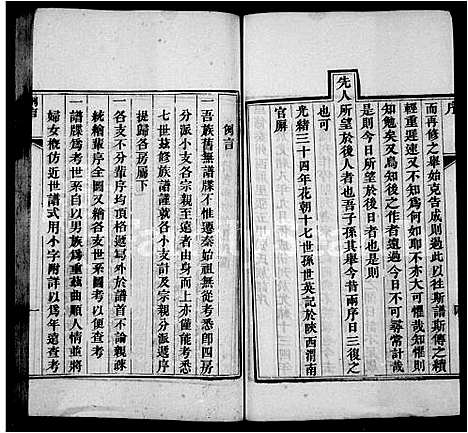 序
而再修之舉始克告成則過此以往斯譜斯傳之續
輕重遲速又不知為何如耶不亦大可懼哉知懼則
知勉矣又烏知後之作者遠過今日不可尋常計哉
是則今日所望於後人者也是則
先人所望於後人者也吾子孫其舉今昔兩序日三復之
也可
光緒三十四年花朝十七世孫世英記於陝西渭南
官廨
例言
例言
一吾族舊無譜牒不惟遷秦始祖無從考悉卽四房
分派小支各宗親至遠者由上亦僅能考悉
七世茲修族譜謹就各小支計及宗親分派遞序
提歸各房屬下
一各支不分輩序均頂格遞寫外於譜首不論親疎
統繪輩序全圖又繪各支世系圖考以便查考
一譜牒為考世系自以男族為重茲曲順人情並將
婦女概仿近世譜式用小字附詳以為年遠查考